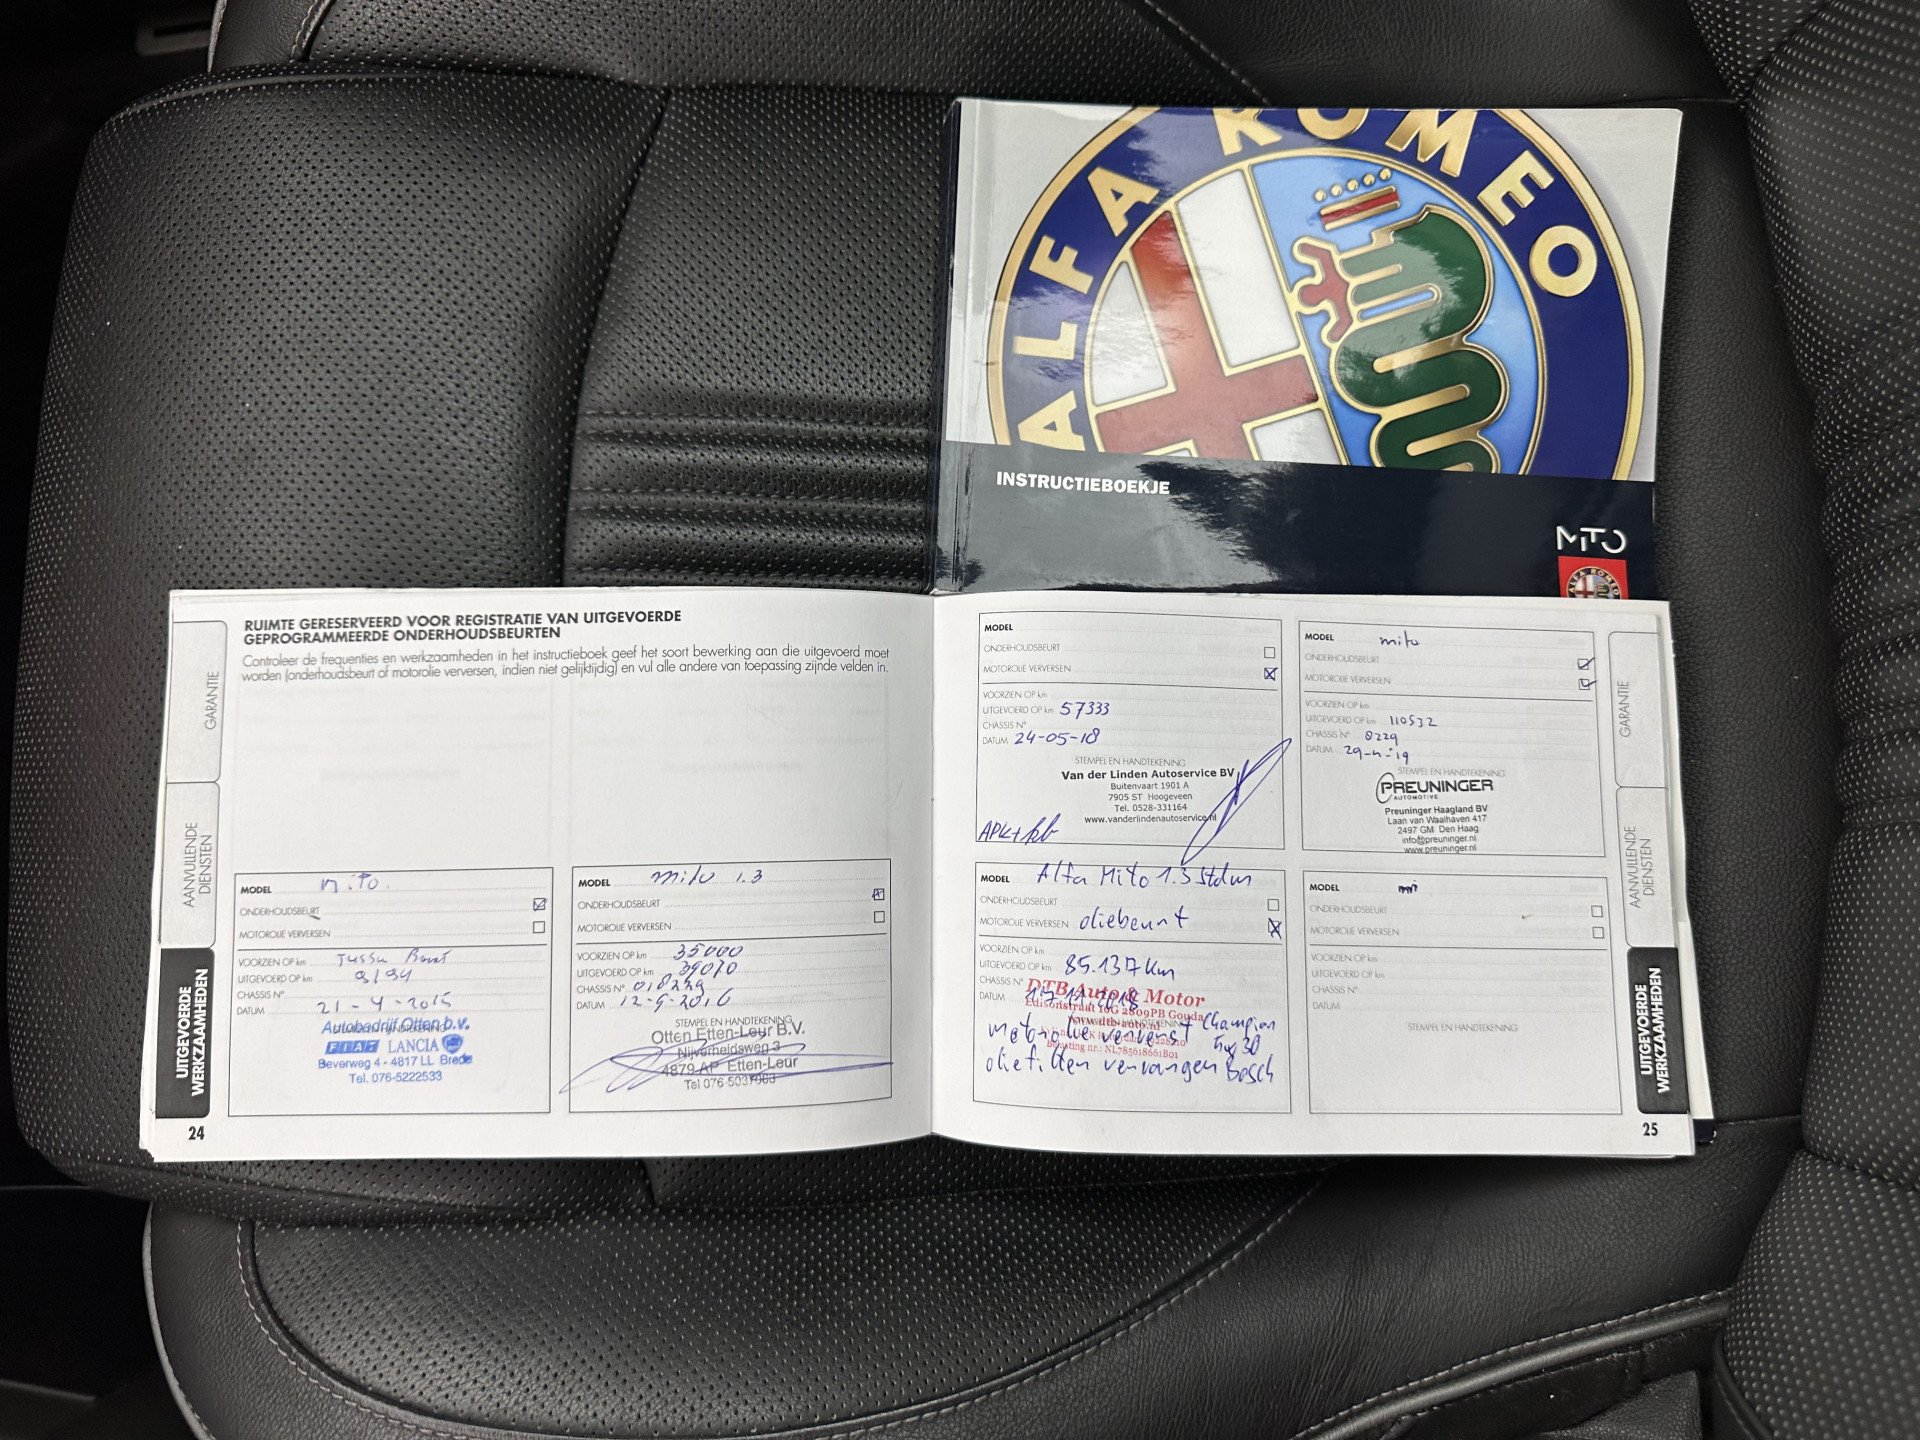 ALFA ROMEO
INSTRUCTIEBOEKJE
MiTO
ALFA ROMEO
GARANTIE
AANVULLENDE DIENSTEN
UITGEVOERDE WERKZAAMHEDEN
RUIMTE GERESERVEERD VOOR REGISTRATIE VAN UITGEVOERDE
GEPROGRAMMEERDE ONDERHOUDSBEURTEN
Controleer de frequenties en werkzaamheden in het instructieboek geef het soort bewerking aan die uitgevoerd moet
worden (onderhoudsbeurt of motorolie verversen, indien niet gelijktijdig) en vul alle andere van toepassing zijnde velden in.
MODEL mito.
ONDERHOUDSBEURT
MOTOROLIE VERVERSEN
VOORZIEN OP km
UITGEVOERD OP km
CHASSIS N°
DATUM 21-4-2015
Autobedrijf Otten b.v.
FIAT LANCIA
Beverweg 4 - 4817 LL Breda
Tel. 076-5222533
MODEL mito 1.3
ONDERHOUDSBEURT
MOTOROLIE VERVERSEN
VOORZIEN OP km 35000
UITGEVOERD OP km 39070
CHASSIS N° 018229
DATUM 12-9-2016
STEMPEL EN HANDTEKENING
Otten Etten-Leur B.V.
Nijverheidsweg 3
4879 AP Etten-Leur
Tel 076-5037083
24
MODEL
ONDERHOUDSBEURT
MOTOROLIE VERVERSEN
VOORZIEN OP km
UITGEVOERD OP km 57333
CHASSIS N°
DATUM 24-05-18
STEMPEL EN HANDTEKENING
Van der Linden Autoservice BV
Buitenvaart 1901 A
7905 ST Hoogeveen
Tel. 0528-331164
www.vanderlindenautoservice.nl
APK +
MODEL mito
ONDERHOUDSBEURT
MOTOROLIE VERVERSEN
VOORZIEN OP km
UITGEVOERD OP km 110532
CHASSIS N° 8229
DATUM 29-11-19
STEMPEL EN HANDTEKENING
PREUNINGER
AUTOMOTIVE
Preuninger Haagland BV
Laan van Waalhaven 417
2497 GM Den Haag
info@preuninger.nl
www.preuninger.nl
MODEL Alfa Mito 1.3 Jtdm
ONDERHOUDSBEURT
MOTOROLIE VERVERSEN oliebeurt
VOORZIEN OP km
UITGEVOERD OP km 85.137 km
CHASSIS N°
DTB Auto & Motor
DATUM 17.11.2018
Edisonstraat 16G 2809PB Gouda
www.dtb-auto.nl
motorolie ververst Champion
5w30
Belasting nr.: NL785618661B01
oliefilter vervangen Bosch
MODEL
ONDERHOUDSBEURT
MOTOROLIE VERVERSEN
VOORZIEN OP km
UITGEVOERD OP km
CHASSIS N°
DATUM
STEMPEL EN HANDTEKENING
GARANTIE
AANVULLENDE DIENSTEN
UITGEVOERDE WERKZAAMHEDEN
25